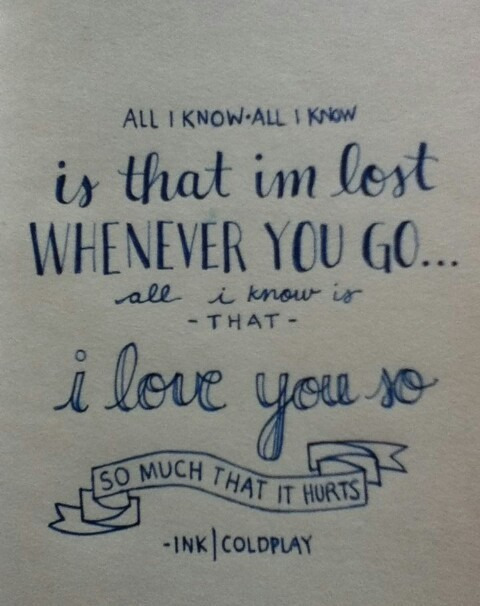 ALL I KNOW·ALL I KNOW
is that im lost
WHENEVER YOU GO...
all i know is
-THAT-
i love you so
SO MUCH THAT IT HURTS
-INK|COLDPLAY